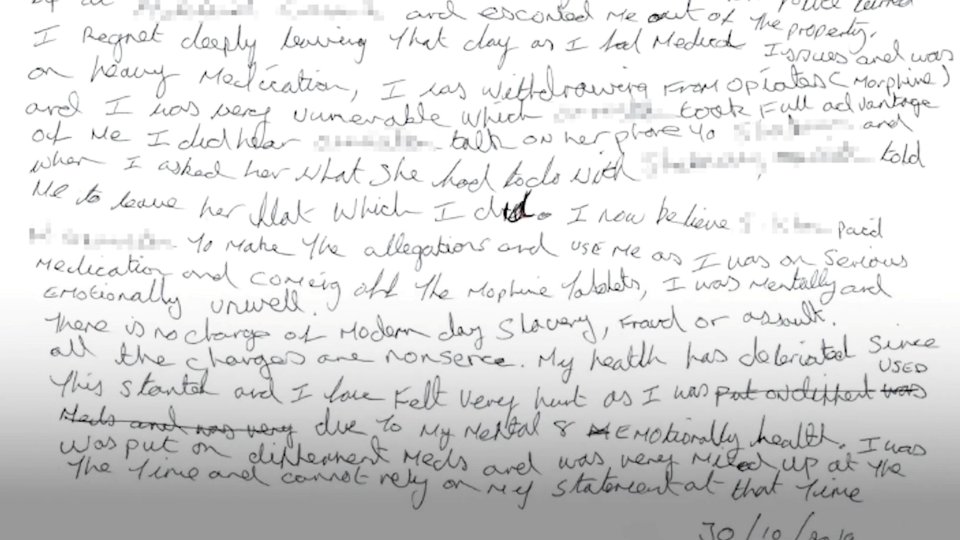 and escorted me out of the property.
I Regret deeply leaving that day as I had Medical Issues and was
on heavy Medication, I was withdrawing From Opiates (Morphine)
and I was very vunerable which took Full advantage
of Me I did hear talk on her phone to and
when I asked her what She had todo with told
Me to leave her flat Which I did. I now believe paid
To Make The allegations and USE Me as I was on Serious
Medication and coming off The Mophine Tablets, I was Mentally and
EMotionally unwell.
There is no charge of Modern day Slavery, Fraud or assault.
all the charges are nonsence. My health has deleriated Since
This started and I have Felt Very hurt as I was put on diffent was USED
Meds and was very due To My Mental & EMotionally health. I was
Was put on differnent Meds and was very Mixed up at The
The Time and cannot rely on My Statement at that Time
30/10/2019